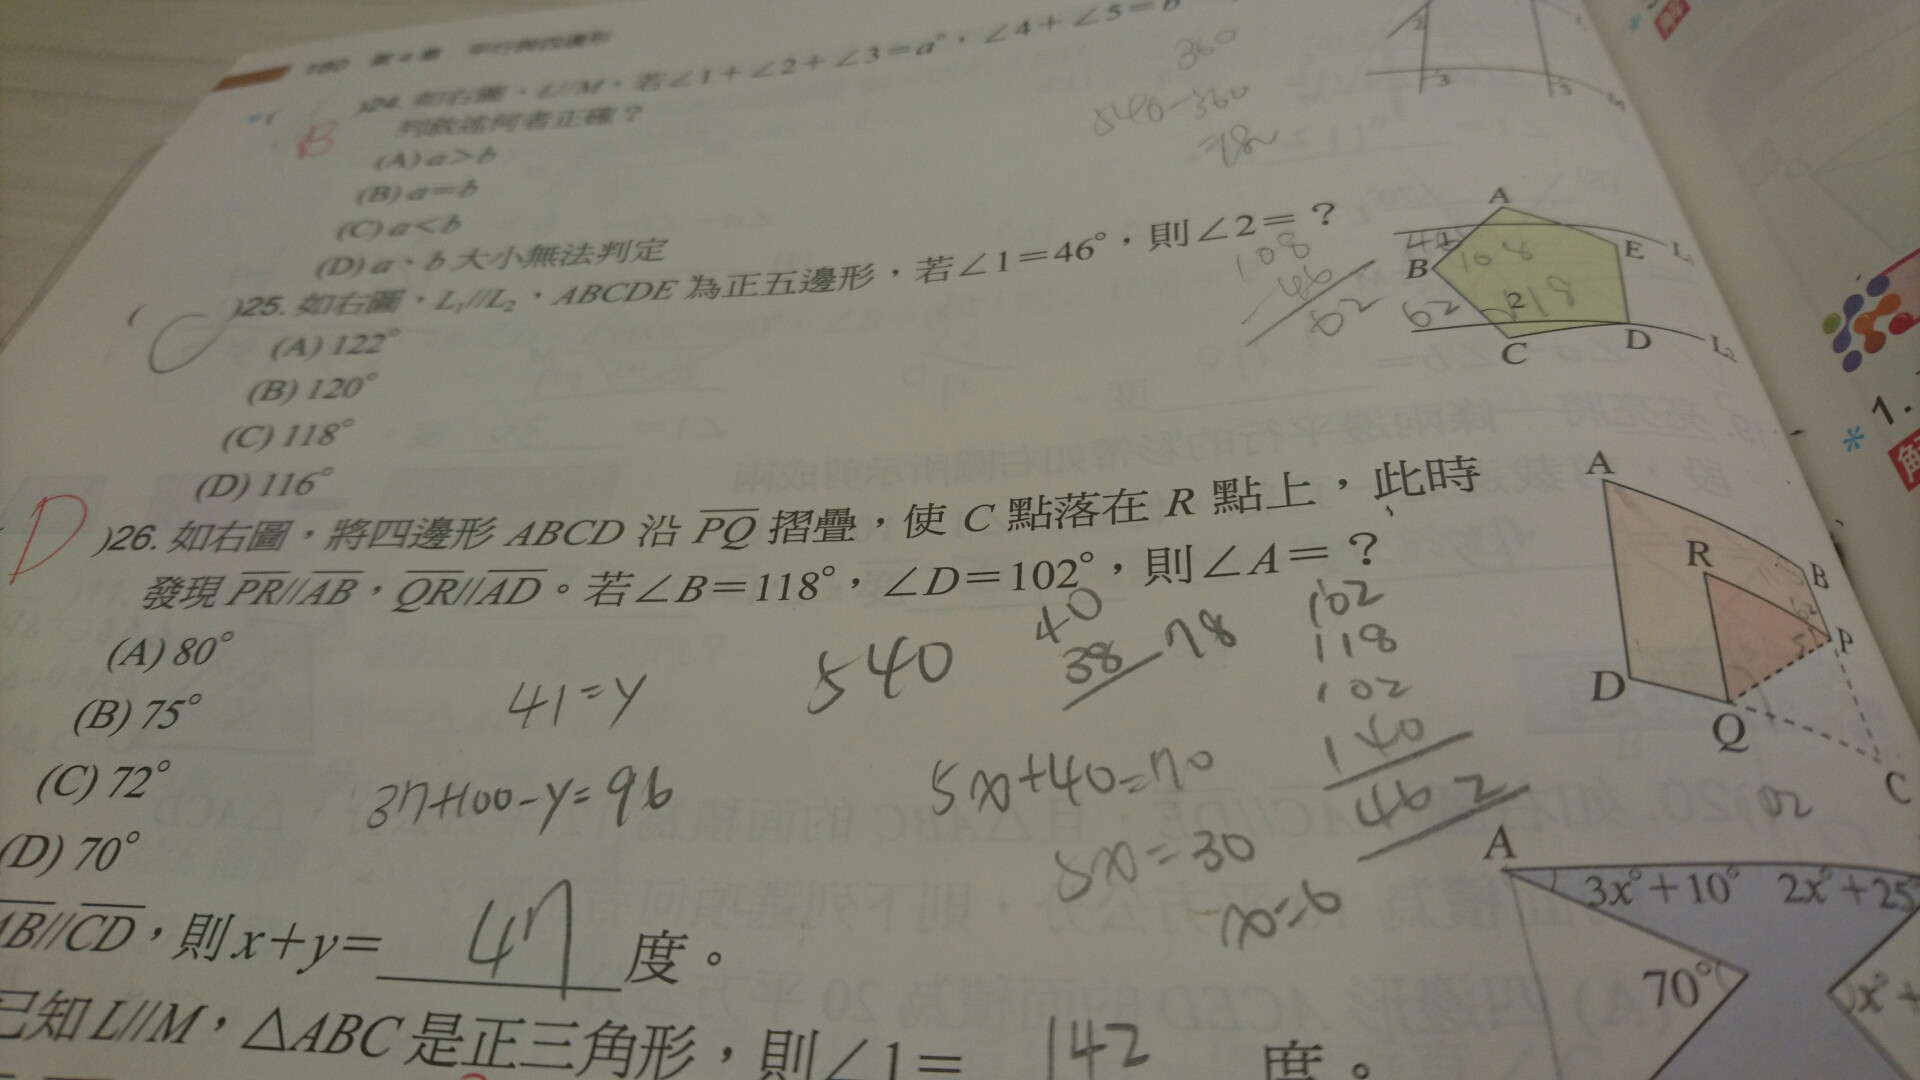 180 第4章 平行與四邊形
*( B )24. 如右圖，L//M，若∠1+∠2+∠3=a°，∠4+∠5=b
列敘述何者正確？
(A) a>b
(B) a=b
(C) a<b
(D) a、b 大小無法判定
360
540-360
=18
2
3
5
M
( C )25. 如右圖，L₁//L₂，ABCDE 為正五邊形，若∠1=46°，則∠2=？
(A) 122°
(B) 120°
(C) 118°
(D) 116°
108
46
62
A
B
C
D
E
L₁
L₂
1
2
108
62
118
D )26. 如右圖，將四邊形 ABCD 沿 PQ 摺疊，使 C 點落在 R 點上，此時
發現 PR//AB，QR//AD。若∠B=118°，∠D=102°，則∠A=？
(A) 80°
(B) 75°
(C) 72°
(D) 70°
A
R
B
P
D
Q
C
41=y
37+100-y=96
540
40
38
78
5x+40=70
5x=30
x=6
102
118
102
140
462
AB//CD，則x+y= 47 度。
已知L//M，△ABC是正三角形，則∠1= 142 度。
A
3x°+10°
2x°+25
70°
x°+
* 1.
解